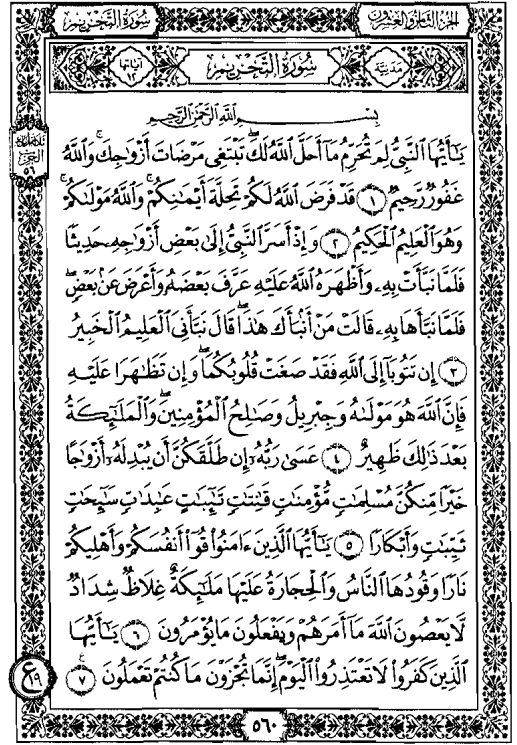 سُورَةُ التَّحْرِيمِ
الجزء الثامن والعشرون
مَدَنِيَّة
سُورَةُ التَّحْرِيمِ
آياتها ١٢
بِسْمِ اللَّهِ الرَّحْمَٰنِ الرَّحِيمِ
يَٰٓأَيُّهَا ٱلنَّبِىُّ لِمَ تُحَرِّمُ مَآ أَحَلَّ ٱللَّهُ لَكَ ۖ تَبْتَغِى مَرْضَاتَ أَزْوَٰجِكَ ۚ وَٱللَّهُ
غَفُورٌ رَّحِيمٌ ١ قَدْ فَرَضَ ٱللَّهُ لَكُمْ تَحِلَّةَ أَيْمَٰنِكُمْ ۚ وَٱللَّهُ مَوْلَىٰكُمْ ۖ
وَهُوَ ٱلْعَلِيمُ ٱلْحَكِيمُ ٢ وَإِذْ أَسَرَّ ٱلنَّبِىُّ إِلَىٰ بَعْضِ أَزْوَٰجِهِۦ حَدِيثًا
فَلَمَّا نَبَّأَتْ بِهِۦ وَأَظْهَرَهُ ٱللَّهُ عَلَيْهِ عَرَّفَ بَعْضَهُۥ وَأَعْرَضَ عَنۢ بَعْضٍ ۖ
فَلَمَّا نَبَّأَهَا بِهِۦ قَالَتْ مَنْ أَنۢبَأَكَ هَٰذَا ۖ قَالَ نَبَّأَنِىَ ٱلْعَلِيمُ ٱلْخَبِيرُ
٣ إِن تَتُوبَآ إِلَى ٱللَّهِ فَقَدْ صَغَتْ قُلُوبُكُمَا ۖ وَإِن تَظَٰهَرَا عَلَيْهِ
فَإِنَّ ٱللَّهَ هُوَ مَوْلَىٰهُ وَجِبْرِيلُ وَصَٰلِحُ ٱلْمُؤْمِنِينَ ۖ وَٱلْمَلَٰٓئِكَةُ
بَعْدَ ذَٰلِكَ ظَهِيرٌ ٤ عَسَىٰ رَبُّهُۥٓ إِن طَلَّقَكُنَّ أَن يُبْدِلَهُۥٓ أَزْوَٰجًا
خَيْرًا مِّنكُنَّ مُسْلِمَٰتٍ مُّؤْمِنَٰتٍ قَٰنِتَٰتٍ تَٰٓئِبَٰتٍ عَٰبِدَٰتٍ سَٰٓئِحَٰتٍ
ثَيِّبَٰتٍ وَأَبْكَارًا ٥ يَٰٓأَيُّهَا ٱلَّذِينَ ءَامَنُوا۟ قُوٓا۟ أَنفُسَكُمْ وَأَهْلِيكُمْ
نَارًا وَقُودُهَا ٱلنَّاسُ وَٱلْحِجَارَةُ عَلَيْهَا مَلَٰٓئِكَةٌ غِلَاظٌ شِدَادٌ
لَّا يَعْصُونَ ٱللَّهَ مَآ أَمَرَهُمْ وَيَفْعَلُونَ مَا يُؤْمَرُونَ ٦ يَٰٓأَيُّهَا
ٱلَّذِينَ كَفَرُوا۟ لَا تَعْتَذِرُوا۟ ٱلْيَوْمَ ۖ إِنَّمَا تُجْزَوْنَ مَا كُنتُمْ تَعْمَلُونَ ٧
٥٦٠